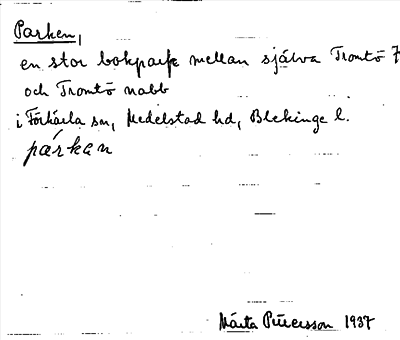 Parken,
en stor bokpark mellan själva Tromtö
och Tromtö nabb
i Förkärla sn, Medelstad hd, Blekinge l.
párkan
Märta 1937